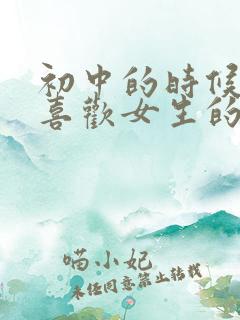 初中的時候
喜歡女生的
喵小妃
未任同意禁止转载